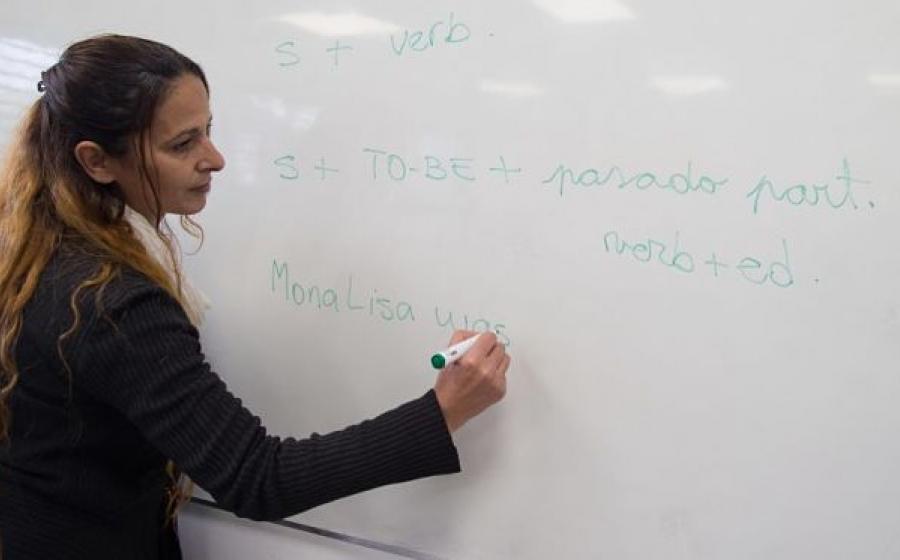 S + verb.
S + TO-BE + pasado part.
verb + ed.
MonaLisa was